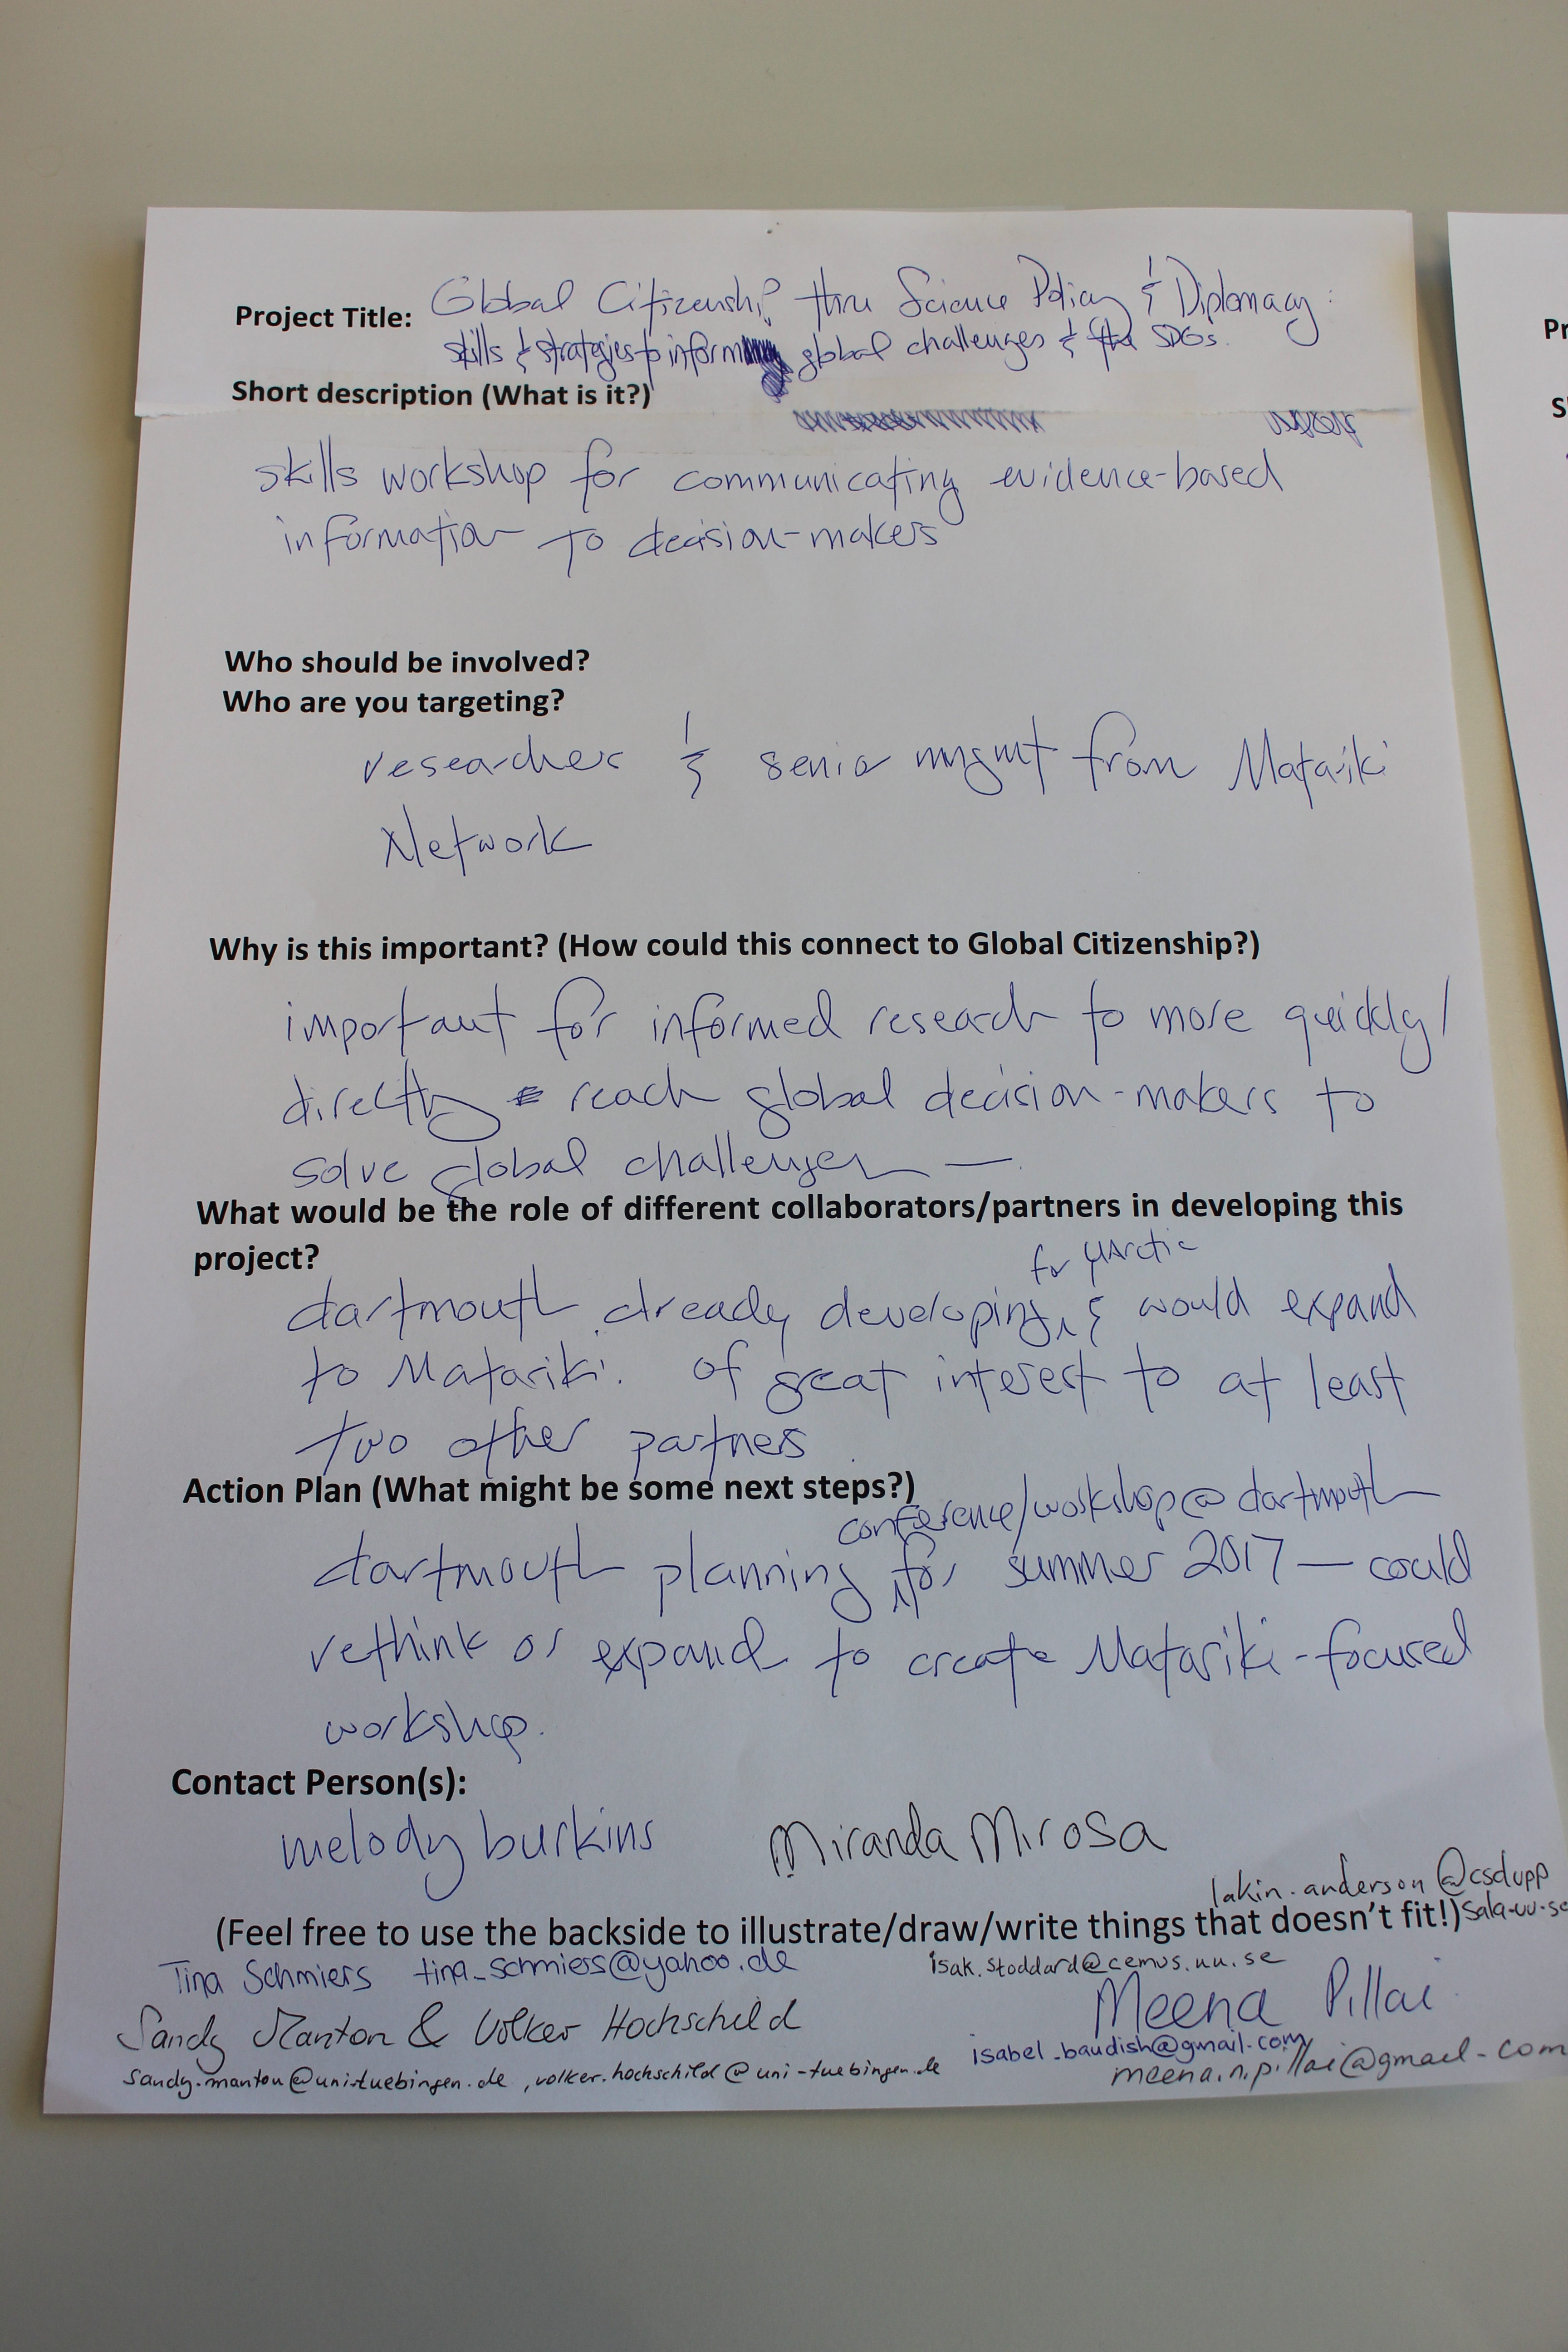 Project Title: Global Citizenship thru Science Policy & Diplomacy:
skills & strategies to inform global challenges & the SDGs.
Short description (What is it?)
skills workshop for communicating evidence-based
information to decision-makers
Who should be involved?
Who are you targeting?
researchers & senior mngmt from Matariki
Network
Why is this important? (How could this connect to Global Citizenship?)
important for informed research to more quickly/
directly reach global decision-makers to
solve global challenges —
What would be the role of different collaborators/partners in developing this
project?
for UArctic
dartmouth already developing & would expand
to Matariki. of great interest to at least
two other partners
Action Plan (What might be some next steps?)
conference/workshop @ dartmouth
dartmouth planning for summer 2017 — could
rethink or expand to create Matariki-focused
workshop.
Contact Person(s):
melody burkins Miranda Mirosa
lakin.anderson@csdupp
sala.uu.se
(Feel free to use the backside to illustrate/draw/write things that doesn't fit!)
Tina Schmiers tina_schmiers@yahoo.de isak.stoddard@cemus.uu.se
Sandy Manton & Volker Hochschild Meena Pillai
isabel_baudish@gmail.com
sandy.manton@uni-tuebingen.de, volker.hochschild@uni-tuebingen.de meena.n.pillai@gmail.com
Pr
S